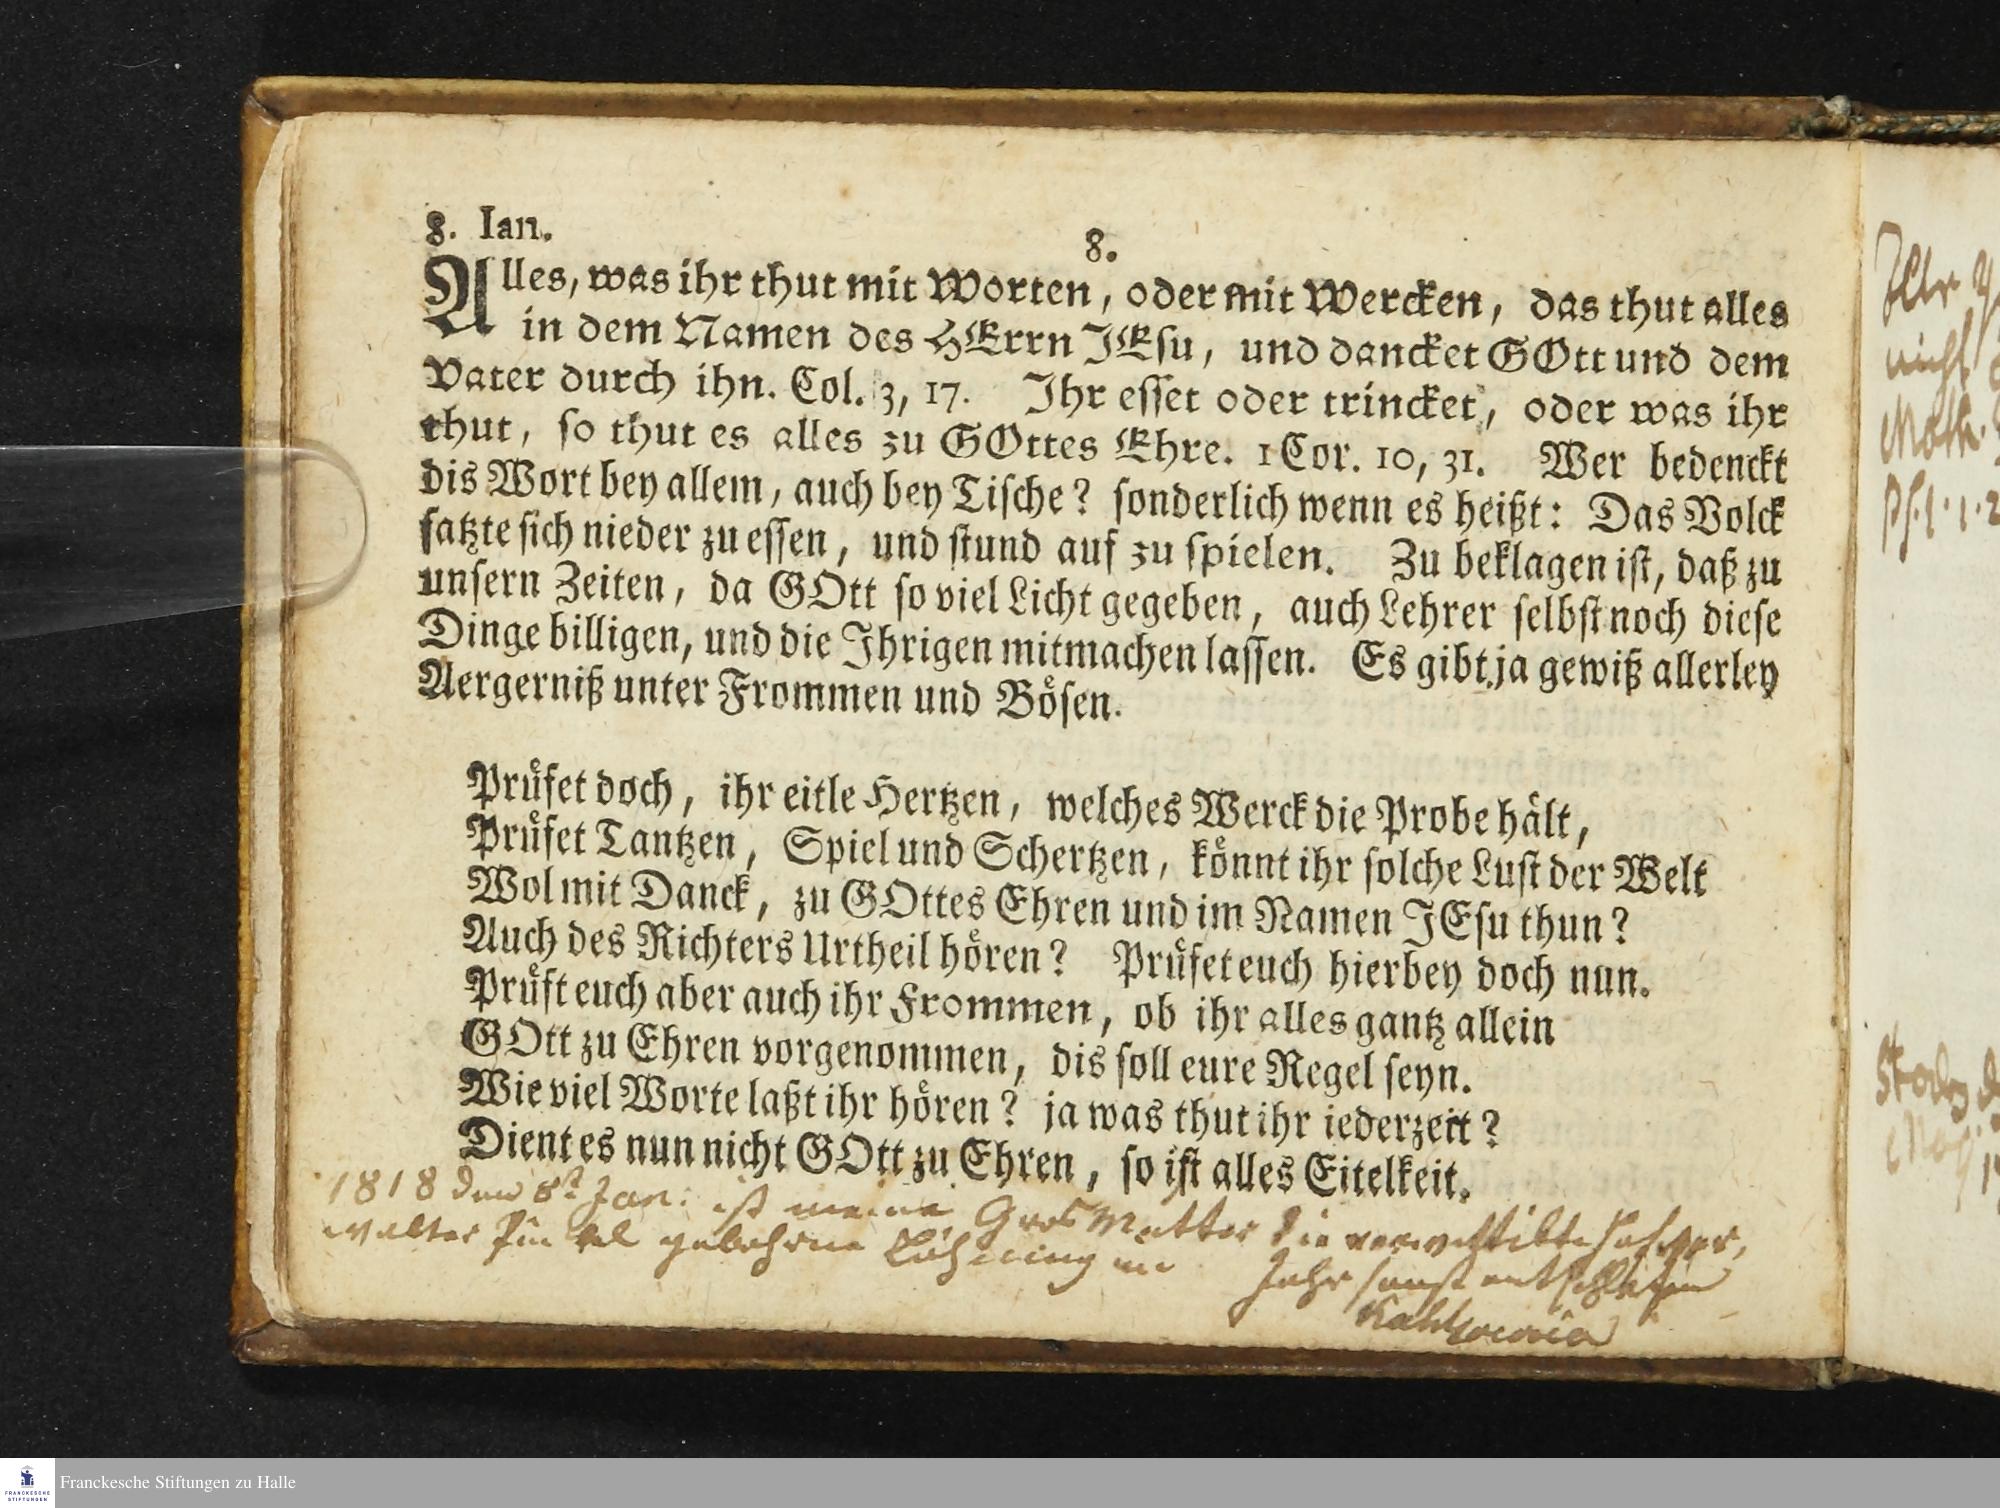 8. Ian.
8.
Alles, was ihr thut mit Worten, oder mit Wercken, das thut alles
in dem Namen des HErrn JEsu, und dancket GOtt und dem
Vater durch ihn. Col. 3, 17. Ihr esset oder trincket, oder was ihr
thut, so thut es alles zu GOttes Ehre. 1 Cor. 10, 31. Wer bedenckt
dis Wort bey allem, auch bey Tische? sonderlich wenn es heißt: Das Volck
satzte sich nieder zu essen, und stund auf zu spielen. Zu beklagen ist, daß zu
unsern Zeiten, da GOtt so viel Licht gegeben, auch Lehrer selbst noch diese
Dinge billigen, und die Ihrigen mitmachen lassen. Es gibt ja gewiß allerley
Aergerniß unter Frommen und Bösen.
Prüfet doch, ihr eitle Hertzen, welches Werck die Probe hält,
Prüfet Tantzen, Spiel und Schertzen, könnt ihr solche Lust der Welt
Wol mit Danck, zu GOttes Ehren und im Namen JEsu thun?
Auch des Richters Urtheil hören? Prüfet euch hierbey doch nun.
Prüft euch aber auch ihr Frommen, ob ihr alles gantz allein
GOtt zu Ehren vorgenommen, dis soll eure Regel seyn.
Wie viel Worte laßt ihr hören? ja was thut ihr iederzeit?
Dient es nun nicht GOtt zu Ehren, so ist alles Eitelkeit.
1818 den 8t Jan: ist meine Gros Mutter die
walter gebohrne im Jahr sanft entschlafen
Franckesche Stiftungen zu Halle
FRANCKESCHE
STIFTUNGEN